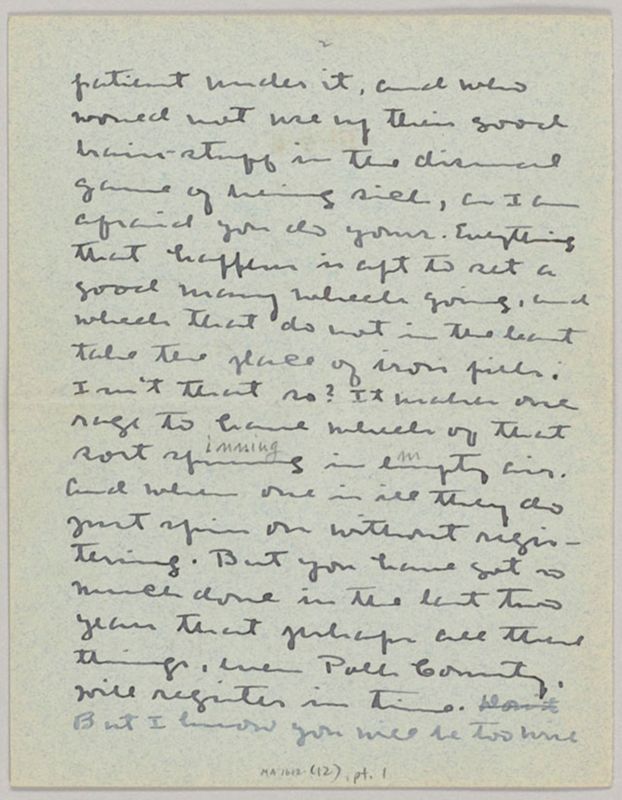 2
patient under it, and who
would not use up their good
brain-stuff in the dismal
game of being sick, as I am
afraid you do yours. Everything
that happens is apt to set a
good many wheels going, and
wheels that do not in the least
take the place of iron pills.
Isn't that so? It makes one
rage to have wheels of that
inning m
sort spinning in empty air.
And when one is ill they do
just spin on without regis-
tering. But you have got so
much done in the last two
years that perhaps all these
things, even Polk County,
will register in time. Don't
But I know you will be too wise
MA 1602 (12), pt. 1